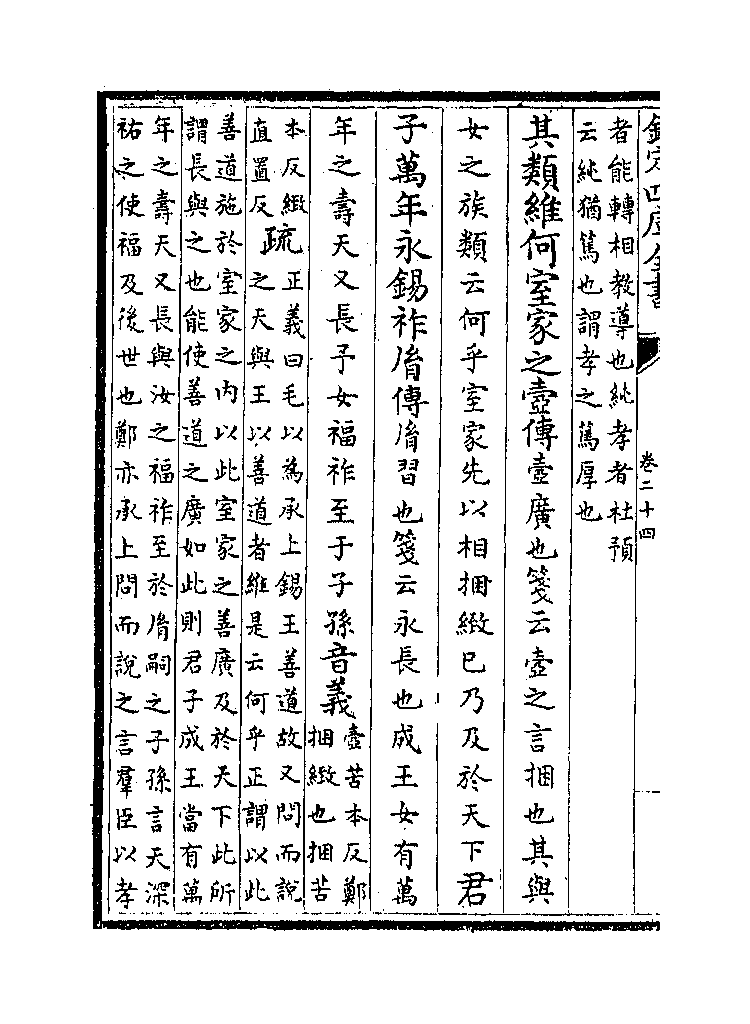 欽定四庫全書
卷二十四
者能轉相教導也純孝者杜預
云純猶篤也謂孝之篤厚也
其類維何室家之壼傳壼廣也箋云壼之言捆也其與
女之族類云何乎室家先以相捆緻已乃及於天下君
子萬年永錫祚胤傳胤習也箋云永長也成王女有萬
年之壽天又長予女福祚至于子孫音義
壼苦本反鄭
捆緻也捆苦
本反緻
直置反
疏
正義曰毛以為承上錫王善道故又問而說
之天與王以善道者維是云何乎正謂以此
善道施於室家之内以此室家之善廣及於天下此所
謂長與之也能使善道之廣如此則君子成王當有萬
年之壽天又長與汝之福祚至於胤嗣之子孫言天深
祐之使福及後世也鄭亦承上問而說之言羣臣以孝